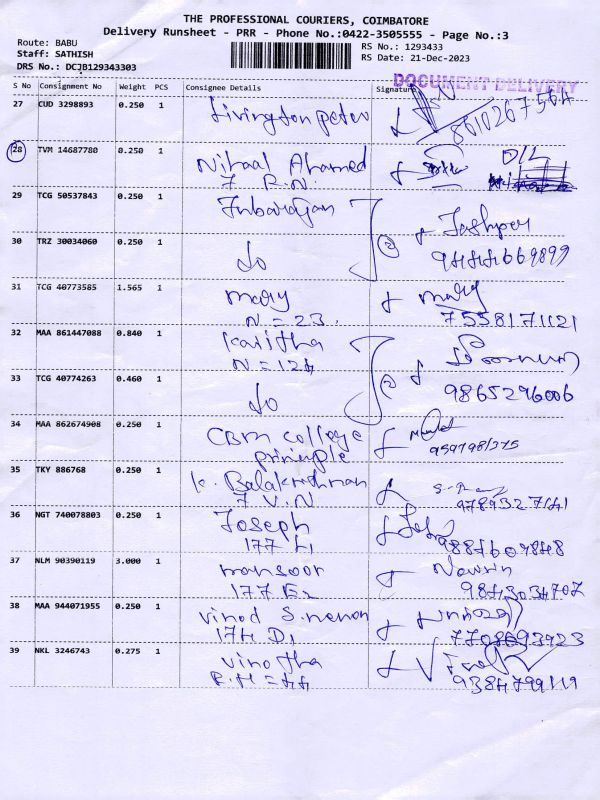 THE PROFESSIONAL COURIERS, COIMBATORE
Delivery Runsheet - PRR - Phone No.:0422-3505555 - Page No.:3
Route: BABU
Staff: SATHISH
DRS No.: DCJB129343303
RS No.: 1293433
RS Date: 21-Dec-2023
DOCUMENT DELIVERY
S No Consignment No Weight PCS Consignee Details Signature
27 CUD 3298893 0.250 1 Livington peter
28 TVM 14687780 0.250 1 Nihaal Ahamed D/L
7 R.N.
29 TCG 50537843 0.250 1 Inbarajan
30 TRZ 30034060 0.250 1 do 2 9444669899
31 TCG 40773585 1.565 1 mary mary
N = 23. 7558171121
32 MAA 861447088 0.840 1 Kavitha
N = 124
33 TCG 40774263 0.460 1 do 2 9865296006
34 MAA 862674908 0.250 1 CBM college
prinniple
35 TKY 886768 0.250 1 K. Balakrishnan
7 V.N 9789327141
36 NGT 740078803 0.250 1 Joseph
177 L1 9887609848
37 NLM 90390119 3.000 1 mansoor
177 E2 9843034707
38 MAA 944071955 0.250 1 vinod S.menon
174 D1 7708693923
39 NKL 3246743 0.275 1 vinotha
R.H = 44 9384799119